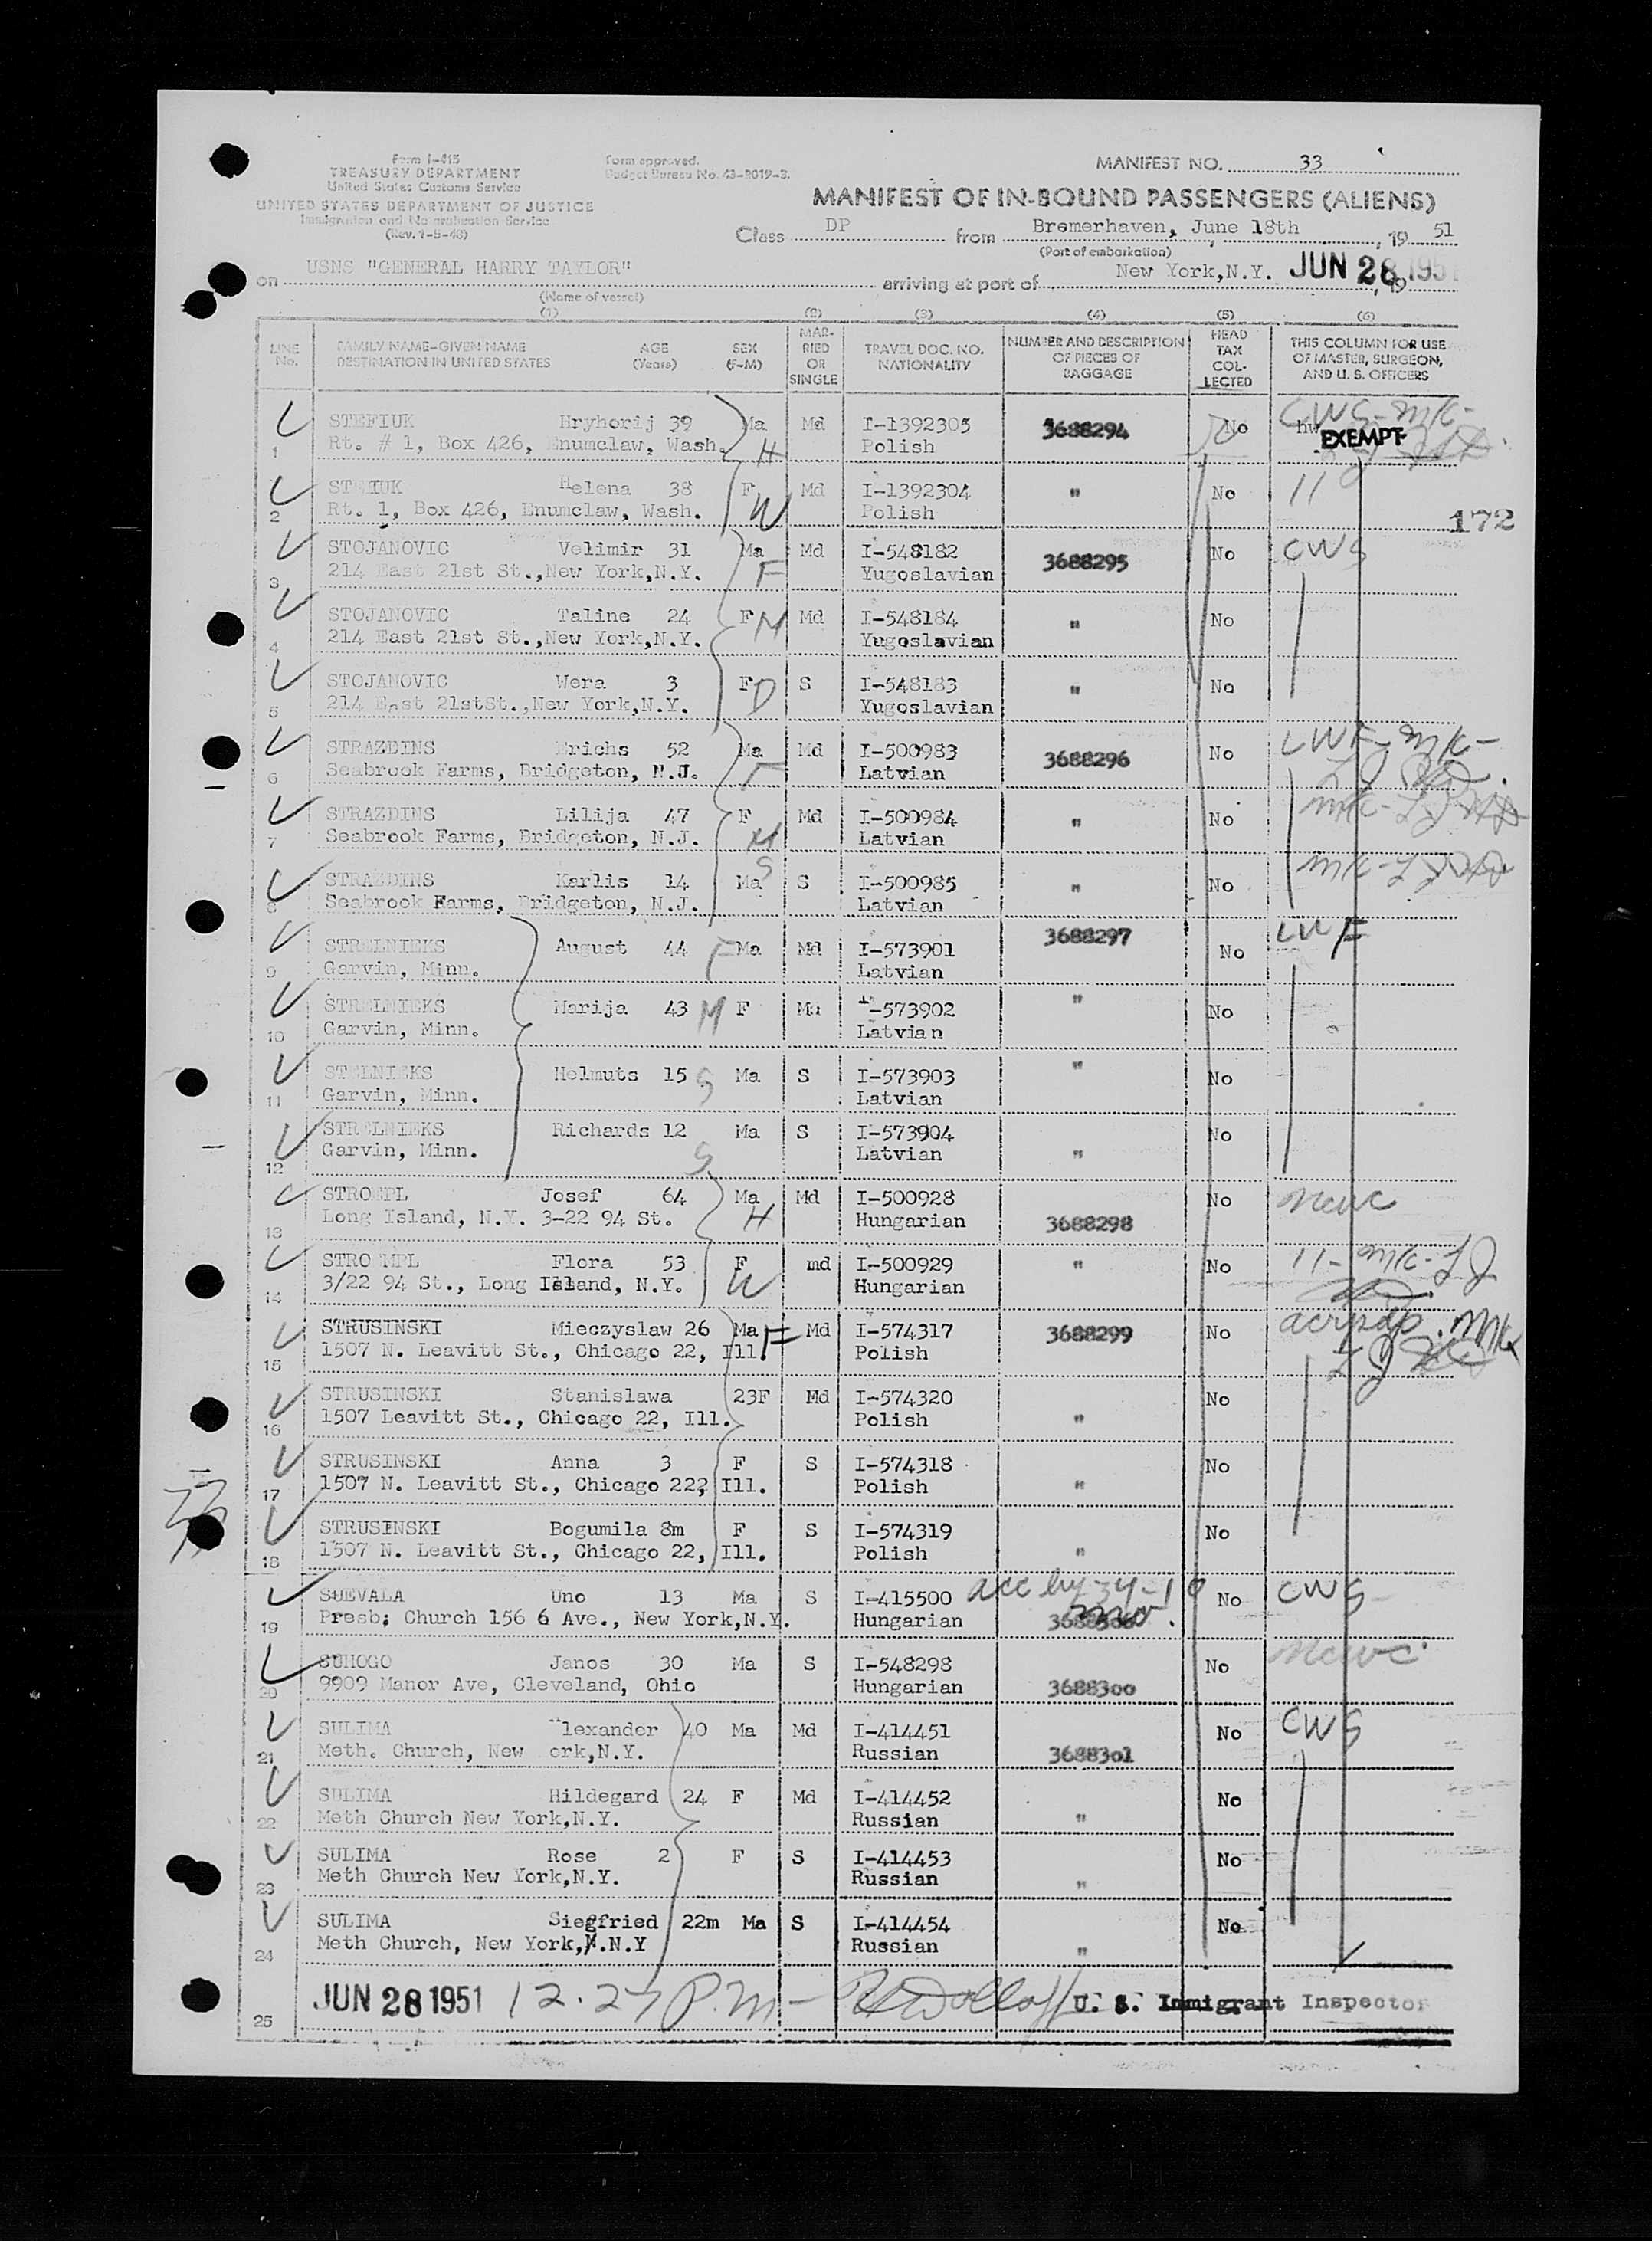 Form I-415
TREASURY DEPARTMENT
United States Customs Service
UNITED STATES DEPARTMENT OF JUSTICE
Immigration and Naturalization Service
(Rev. 1-5-48)
Form approved.
Budget Bureau No. 43-R019-3.
MANIFEST NO. 33
MANIFEST OF IN-BOUND PASSENGERS (ALIENS)
Class DP from Bremerhaven, June 18th, 19 51
(Port of embarkation)
on USNS "GENERAL HARRY TAYLOR" arriving at port of New York,N.Y. JUN 28 1951, 19
(Name of vessel)
(1) (2) (3) (4) (5) (6)
LINE No. FAMILY NAME-GIVEN NAME DESTINATION IN UNITED STATES AGE (Years) SEX (F-M) MARRIED OR SINGLE TRAVEL DOC. NO. NATIONALITY NUMBER AND DESCRIPTION OF PIECES OF BAGGAGE HEAD TAX COLLECTED THIS COLUMN FOR USE OF MASTER, SURGEON, AND U. S. OFFICERS
1 STEFIUK Hryhorij 39 Ma H Md I-1392305 3688294 No CWS EXEMPT
Rt. # 1, Box 426, Enumclaw, Wash. Polish
2 STEIUK Helena 38 F W Md I-1392304 " No 11
Rt. 1, Box 426, Enumclaw, Wash. Polish
172
3 STOJANOVIC Velimir 31 Ma F Md I-548182 3688295 No CWS
214 East 21st St.,New York,N.Y. Yugoslavian
4 STOJANOVIC Taline 24 F M Md I-548184 " No
214 East 21st St.,New York,N.Y. Yugoslavian
5 STOJANOVIC Wera 3 F D S I-548183 " No
214 East 21stSt.,New York,N.Y. Yugoslavian
6 STRAZDINS Erichs 52 Ma F Md I-500983 3688296 No LWF
Seabrook Farms, Bridgeton, N.J. Latvian
7 STRAZDINS Lilija 47 F M Md I-500984 " No
Seabrook Farms, Bridgeton, N.J. Latvian
8 STRAZDINS Karlis 14 Ma S S I-500985 " No
Seabrook Farms, Bridgeton, N.J. Latvian
9 STRELNIEKS August 44 F Ma Md I-573901 3688297 No LWF
Garvin, Minn. Latvian
10 STRELNIEKS Marija 43 M F Md I-573902 " No
Garvin, Minn. Latvian
11 STELNIEKS Helmuts 15 S Ma S I-573903 " No
Garvin, Minn. Latvian
12 STRELNIEKS Richards 12 S Ma S I-573904 " No
Garvin, Minn. Latvian
13 STROEPL Josef 64 Ma H Md I-500928 3688298 No NCWC
Long Island, N.Y. 3-22 94 St. Hungarian
14 STROMPL Flora 53 F W md I-500929 " No 11
3/22 94 St., Long Island, N.Y. Hungarian
15 STRUSINSKI Mieczyslaw 26 Ma F Md I-574317 3688299 No
1507 N. Leavitt St., Chicago 22, Ill. Polish
16 STRUSINSKI Stanislawa 23F Md I-574320 " No
1507 Leavitt St., Chicago 22, Ill. Polish
17 STRUSINSKI Anna 3 F S I-574318 " No
1507 N. Leavitt St., Chicago 222, Ill. Polish
33
18 STRUSINSKI Bogumila 8m F S I-574319 " No
1507 N. Leavitt St., Chicago 22, Ill. Polish
19 SUEVALA Uno 13 Ma S I-415500 acc by 34-10 No CWS
Presb; Church 156 6 Ave., New York,N.Y. Hungarian
20 SUHOGO Janos 30 Ma S I-548298 3688300 No NCWC
9909 Manor Ave, Cleveland, Ohio Hungarian
21 SULIMA Alexander 40 Ma Md I-414451 3688301 No CWS
Meth. Church, New ork,N.Y. Russian
22 SULIMA Hildegard 24 F Md I-414452 " No
Meth Church New York,N.Y. Russian
23 SULIMA Rose 2 F S I-414453 " No
Meth Church New York,N.Y. Russian
24 SULIMA Siegfried 22m Ma S I-414454 " No
Meth Church, New York,N.N.Y Russian
25 JUN 28 1951 12.27 P.M - U. S. Immigrant Inspector